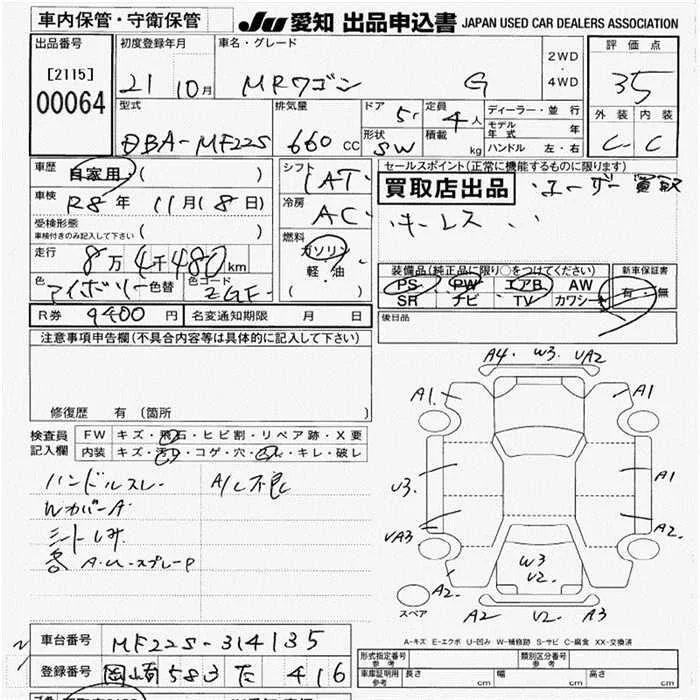 車内保管・守衛保管
JU 愛知 出品申込書 JAPAN USED CAR DEALERS ASSOCIATION
出品番号
[2115]
00064
初度登録年月
21 10月
車名・グレード
MRワゴン G
2WD
・
4WD
評価点
3.5
外装 内装
C C
型式
DBA-MF22S
排気量
660 cc
ドア 5
形状 SW
定員 4人
積載 kg
ディーラー・並行
モデル年式 年
ハンドル 左・右
車歴 自家用・( )
車検 R8年 11月(8日)
受検形態
車検付きのみ記入して下さい ( )
走行 8万4千480km
色 アイボリー 色替 色コード ZGF
シフト
IAT
冷房
AC
燃料
ガソリン
軽・油
( )
セールスポイント(正常に機能するものに限ります)
買取店出品 ・ユーザー買取
・キーレス
装備品(純正品に限り○をつけてください)
PS PW エアB AW
SR ナビ TV カワシート
新車保証書
有・無
R券 9400円 名変通知期限 月 日
後日品
注意事項申告欄(不具合内容等は具体的に記入して下さい)
修復歴 有 (箇所 )
検査員記入欄
FW キズ・飛石・ヒビ割・リペア跡・X要
内装 キズ・汚れ・コゲ・穴・スレ・キレ・破レ
ハンドルスレ A/C不良
WカバーA
シートしみ
A4 W3 UA2
A1 A1
U3 A1
UA3 A2
W3
U2
A2 A2 U2 A3
スペア
A-キズ E-エクボ U-凹み W-補修跡 S-サビ C-腐食 XX-交換済
車台番号 MF22S-314135
登録番号 岡崎583 た 416
形式指定番号 参考
類別区分番号 参考
車庫証明用 参考 長さ cm 幅 cm 高さ cm